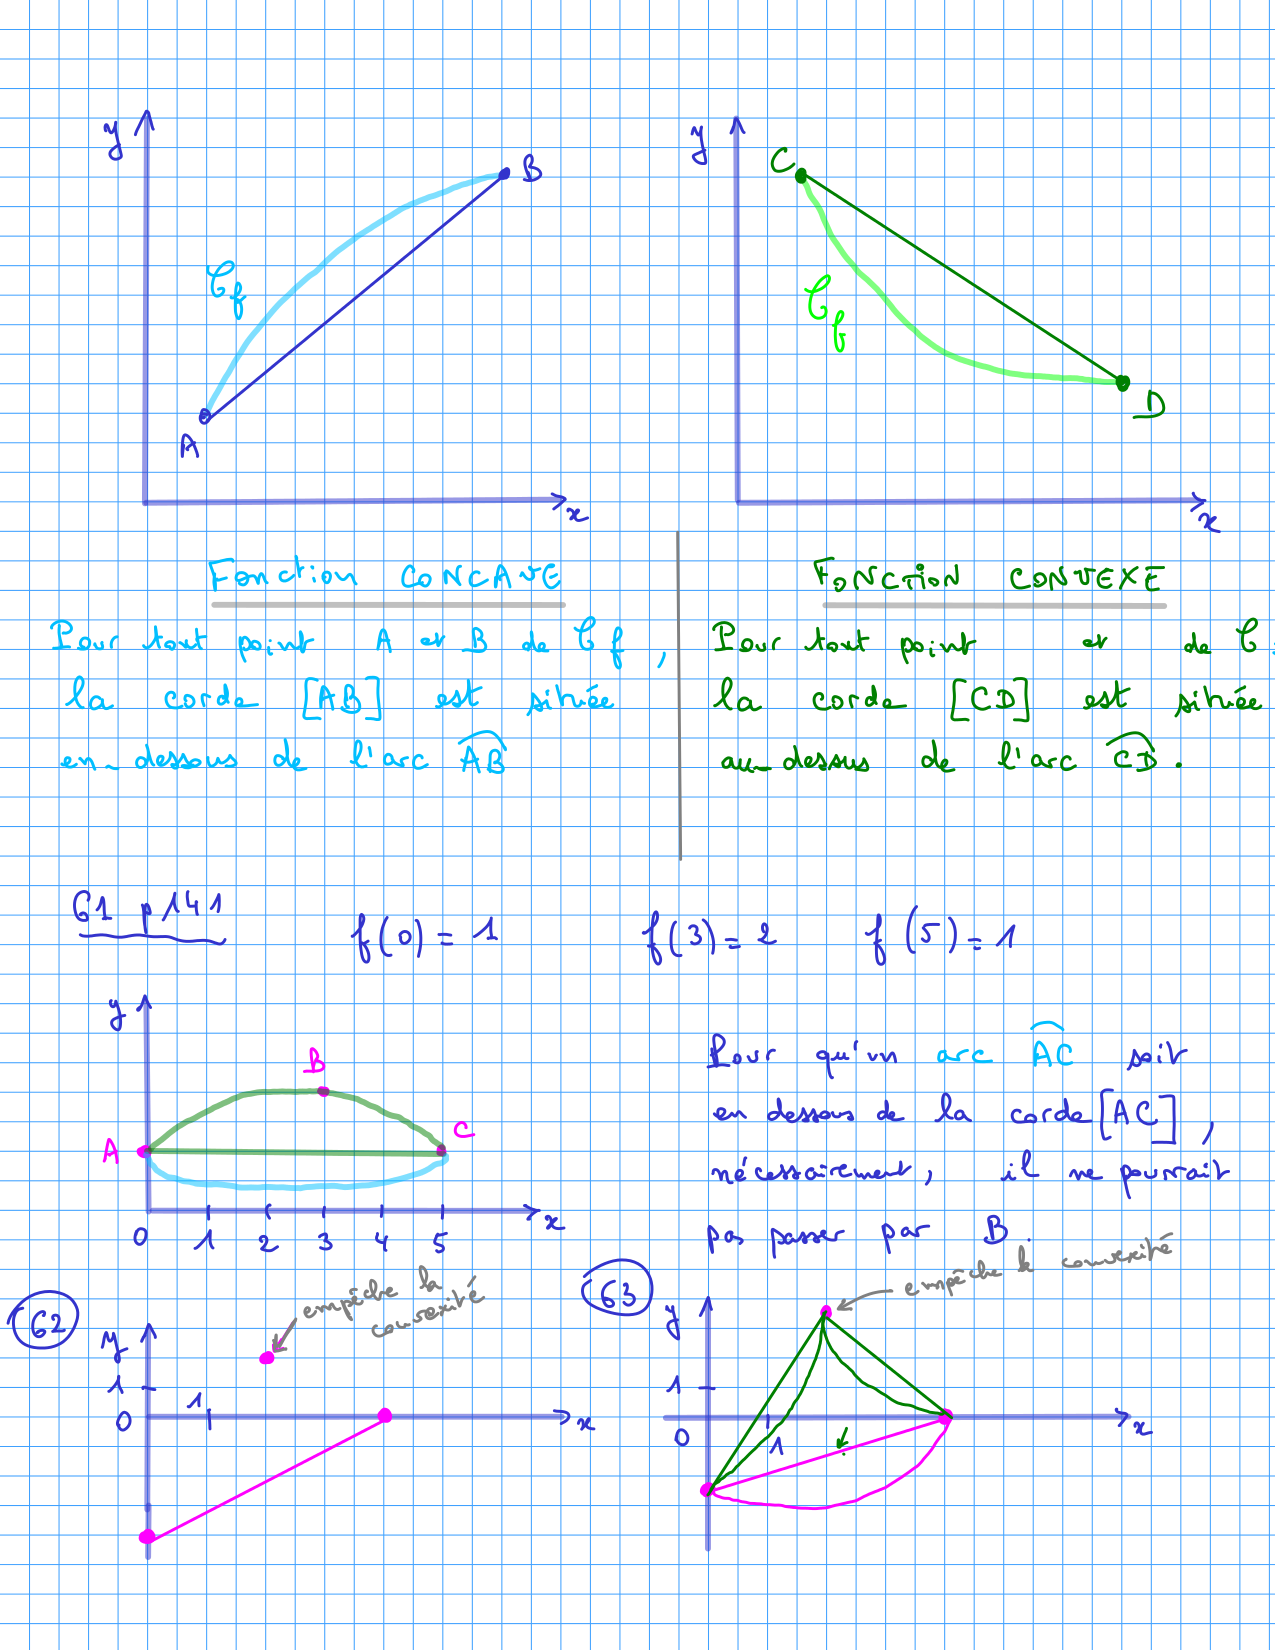 y
B
C_f
A
x
y
C
C_f
D
x
Fonction CONCAVE
Pour tout point A et B de C_f,
la corde [AB] est située
en-dessous de l'arc AB
FONCTION CONVEXE
Pour tout point et de C
la corde [CD] est située
au-dessus de l'arc CD.
61 p 141
f(0) = 1 f(3) = 2 f(5) = 1
y
B
A
C
0 1 2 3 4 5
x
Pour qu'un arc AC soit
en dessous de la corde [AC],
nécessairement, il ne pourrait
pas passer par B.
62
empêche la
convexité
y
1
1
0
x
63
empêche la convexité
y
1
0
1
x